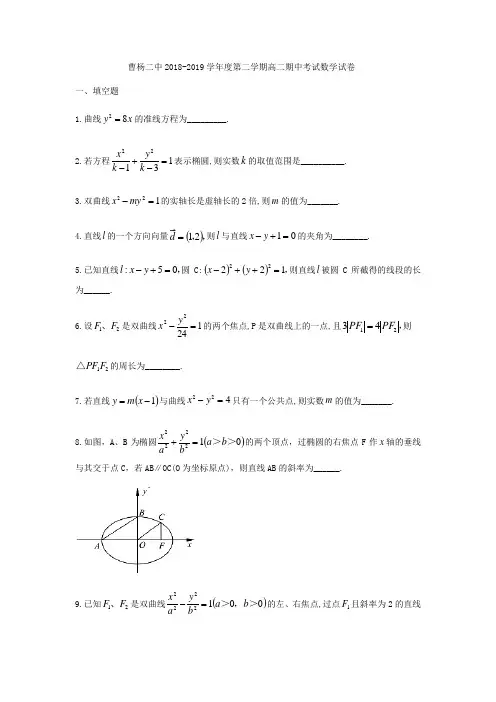 曹杨二中 2018-2019 学年度第二学期高二期中考试数学试卷
一、填空题
1.曲线 y²=8x 的准线方程为_________.
2.若方程 x²/(k-1)+y²/(k-3)=1 表示椭圆,则实数 k 的取值范围是__________.
3.双曲线 x²-my²=1 的实轴长是虚轴长的 2 倍,则 m 的值为_______.
4.直线 l 的一个方向向量 d=(1,2),则 l 与直线 x-y+1=0 的夹角为________.
5.已知直线 l:x-y+5=0,圆 C:(x-2)²+(y+2)²=1,则直线 l 被圆 C 所截得的线段的长
为______.
6.设 F₁、F₂ 是双曲线 x²-y²/24=1 的两个焦点,P 是双曲线上的一点,且 3|PF₁|=4|PF₂|,则
△PF₁F₂ 的周长为________.
7.若直线 y=m(x-1) 与曲线 x²-y²=4 只有一个公共点,则实数 m 的值为_______.
8.如图,A、B 为椭圆 x²/a²+y²/b²=1(a>b>0) 的两个顶点,过椭圆的右焦点 F 作 x 轴的垂线
与其交于点 C,若 AB∥OC(O 为坐标原点),则直线 AB 的斜率为______.
y
B
C
A
O
F
x
9.已知 F₁、F₂ 是双曲线 x²/a²-y²/b²=1(a>0,b>0) 的左、右焦点,过点 F₁ 且斜率为 2 的直线